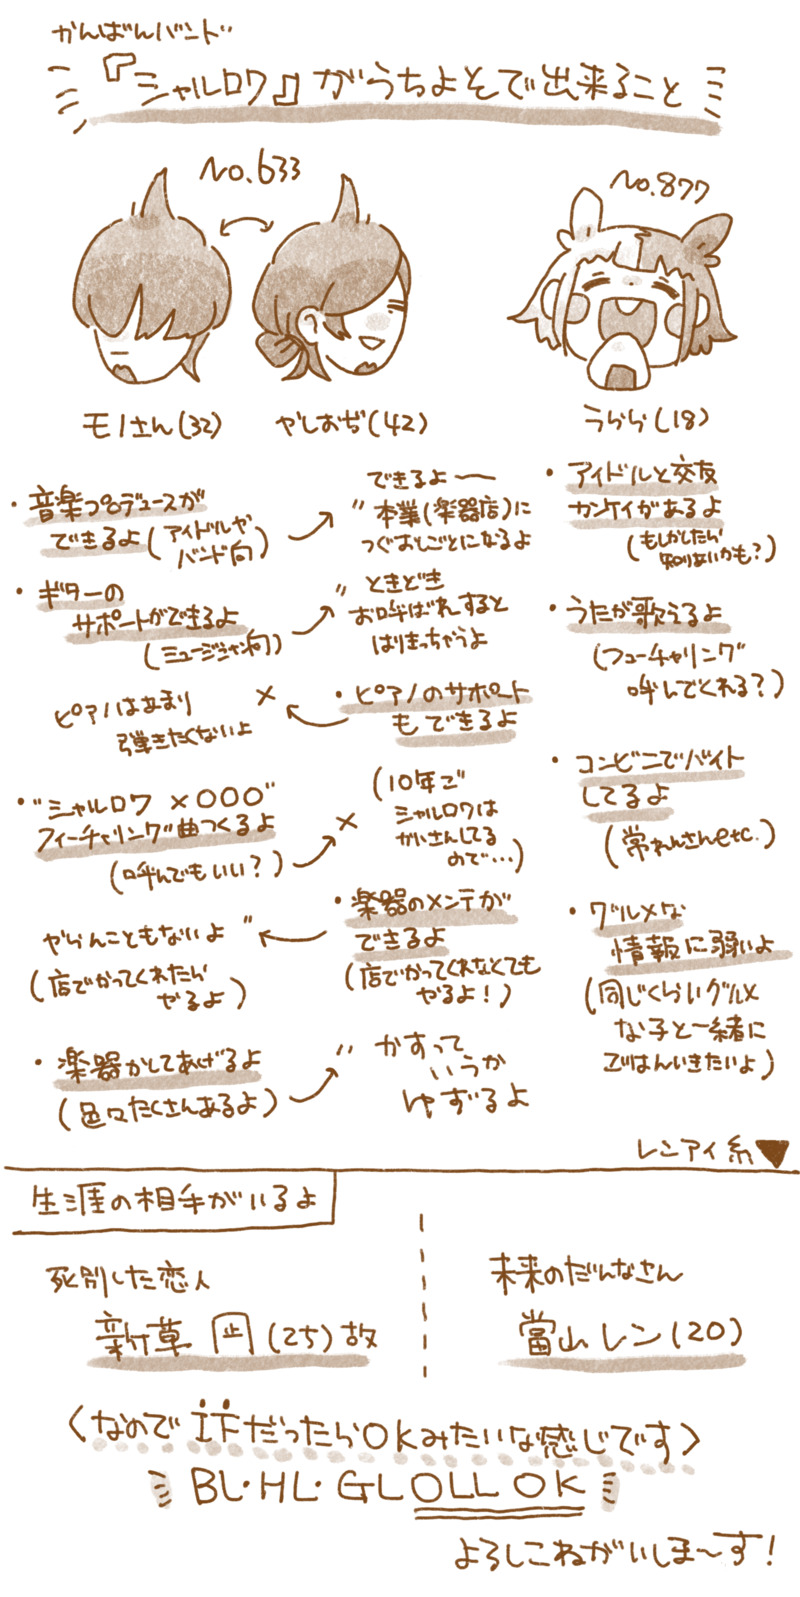 かんばんバンド
『シャルロワ』がうちよそで出来ること
No.633
No.877
モノさん(32)
やしおぢ(42)
うらら(18)
・音楽プロデュースが
できるよ(アイドルや
バンド向)
できるよ〜
〃本業(楽器店)に
つぐおしごとになるよ
・ギターの
サポートができるよ
(ミュージシャン向)
〃ときどき
お呼ばれすると
はりきっちゃうよ
ピアノはあまり
弾きたくないよ
×
・ピアノのサポート
もできるよ
・"シャルロワ×〇〇〇"
フィーチャリング曲つくるよ
(呼んでもいい?)
×
(10年で
シャルロワは
かいさんしてる
ので…)
やらんこともないよ〃
(店でかってくれたら
やるよ)
・楽器のメンテが
できるよ
(店でかってくれなくても
やるよ!)
・楽器かしてあげるよ
(色々たくさんあるよ)
〃かすって
いうか
ゆずるよ
・アイドルと交友
カンケイがあるよ
(もしかしたら
知りあいかも?)
・うたが歌えるよ
(フューチャリング
呼んでくれる?)
・コンビニでバイト
してるよ
(常れんさんetc.)
・グルメな
情報に弱いよ
(同じくらいグルメ
な子と一緒に
ごはんいきたいよ)
レンアイ系▼
生涯の相手がいるよ
死別した恋人
新草 円(25)故
未来のだんなさん
當山レン(20)
〈なのでIFだったらOKみたいな感じです〉
BL・HL・GL OLL OK
よろしこねがいしま〜す!